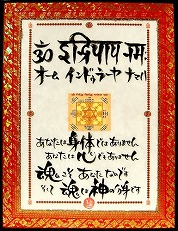 ॐ इन्द्राय नमः
オーム インドゥラーヤ ナマハ
あなたは身体ではありません
あなたは心でもありません
魂こそがあなたなのです
そして魂は神の分身です